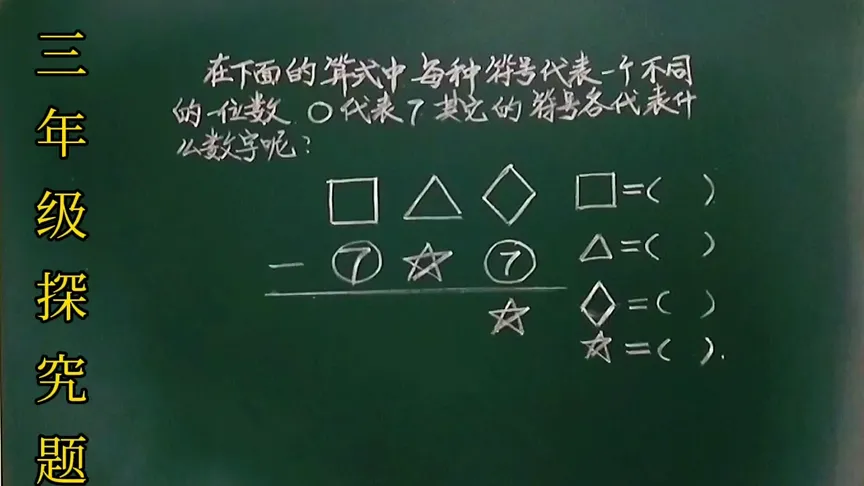 三年级探究题
在下面的算式中每种符号代表一个不同
的一位数 ○代表7其它的符号各代表什
么数字呢?
□ △ ◇
- ⑦ ☆ ⑦
☆
□=( )
△=( )
◇=( )
☆=( ).